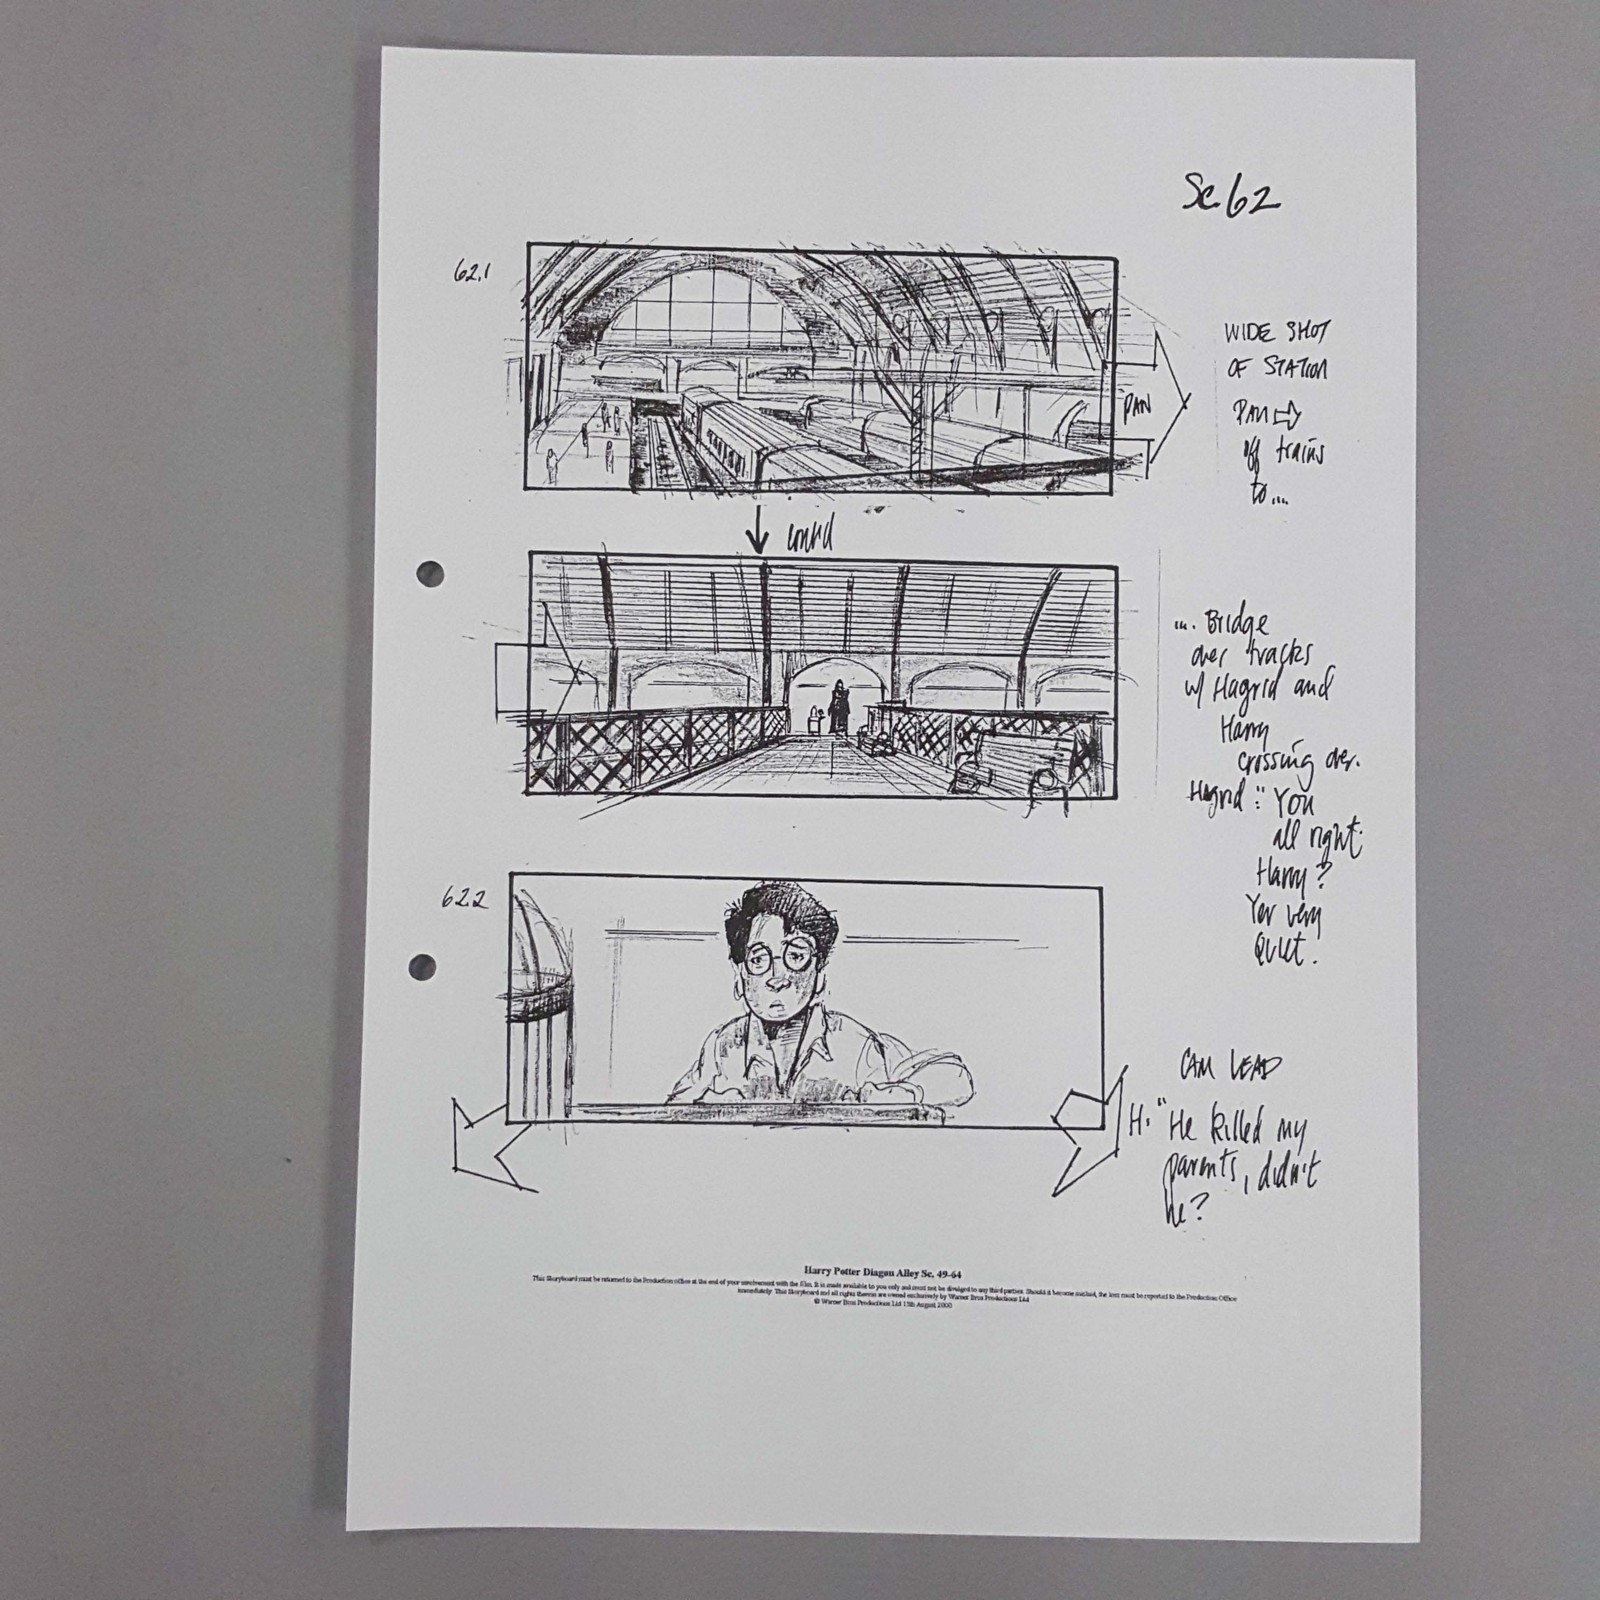 Sc. 62
62.1
WIDE SHOT
OF STATION
PAN
PAN
off trains
to...
cont'd
... Bridge
over tracks
w/ Hagrid and
Harry
crossing over.
Hagrid: "You
all right
Harry?
Yer very
Quiet.
62.2
CAM LEAD
H: "He killed my
parents, didn't
he?
Harry Potter Diagon Alley Sc. 49-64
This Storyboard must be returned to the Production office at the end of your involvement with the film. It is made available to you only and must not be divulged to any third parties. Should it become mislaid, the loss must be reported to the Production Office
immediately. This Storyboard and all rights thereon are owned exclusively by Warner Bros Productions Ltd
© Warner Bros Productions Ltd 15th August 2000